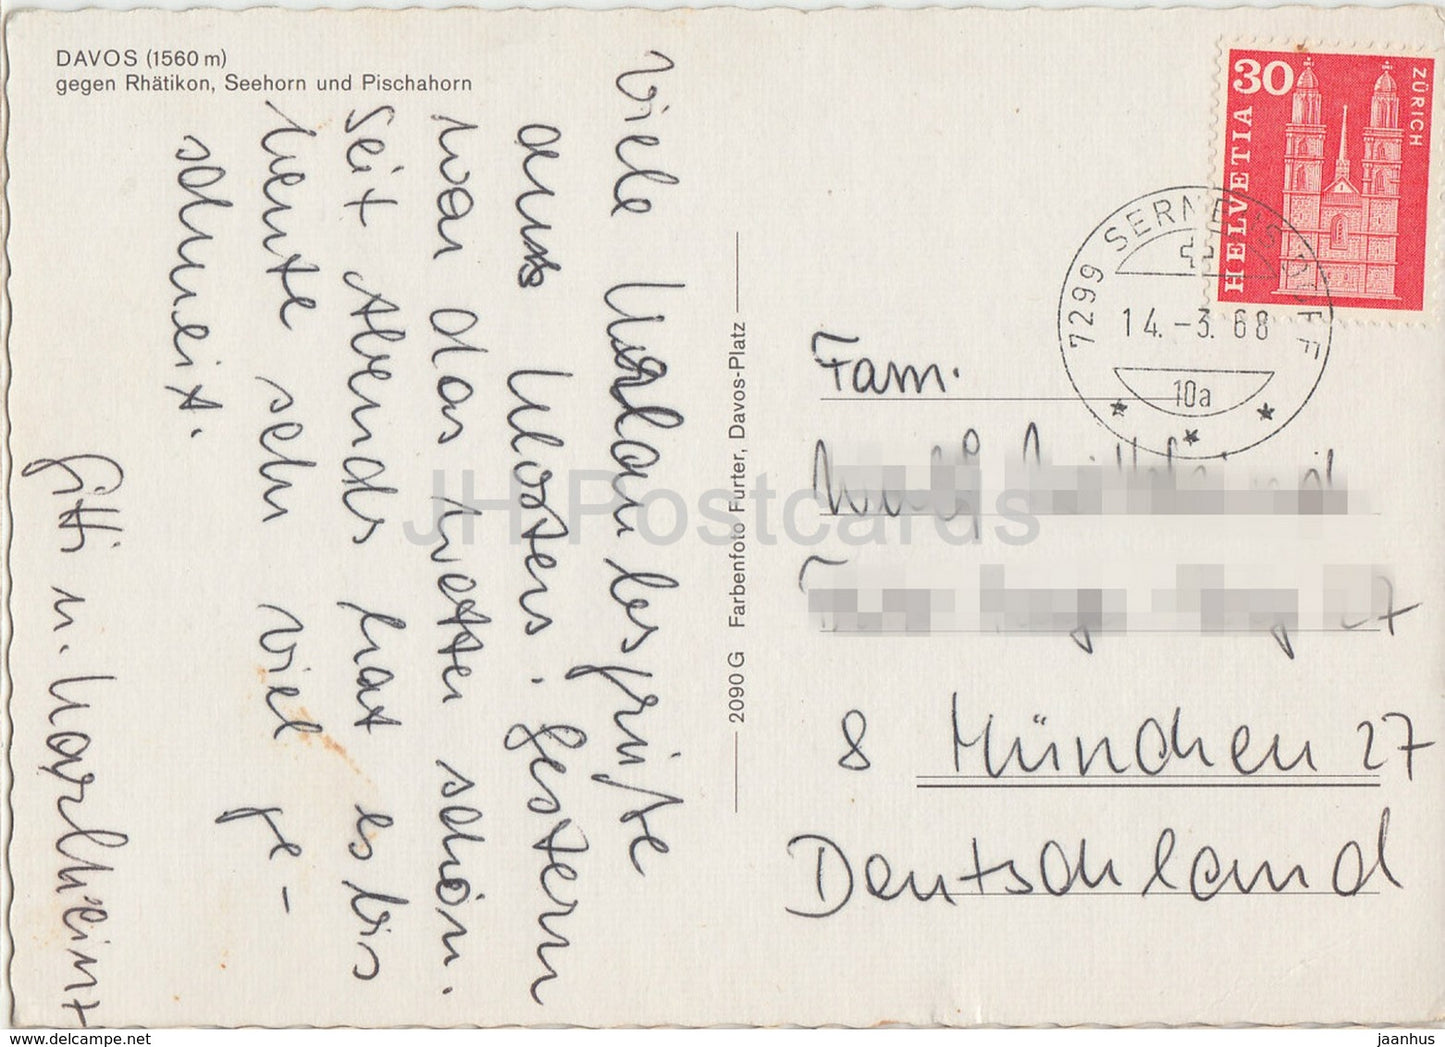 DAVOS (1560 m)
gegen Rhätikon, Seehorn und Pischahorn
Viele Urlaubsgrüße
aus Klosters. Gestern
war das Wetter schön.
Seit Abends hat es bis
heute sehr viel ge-
schneit.
Gitti u. Karlheinz
2090 G Farbenfoto Furter, Davos-Platz
30
HELVETIA
ZÜRICH
7299 SERNEUS DORF
14.-3.68
10a
Fam.
8 München 27
Deutschland
JH Postcards
delcampe.net
jaanhus